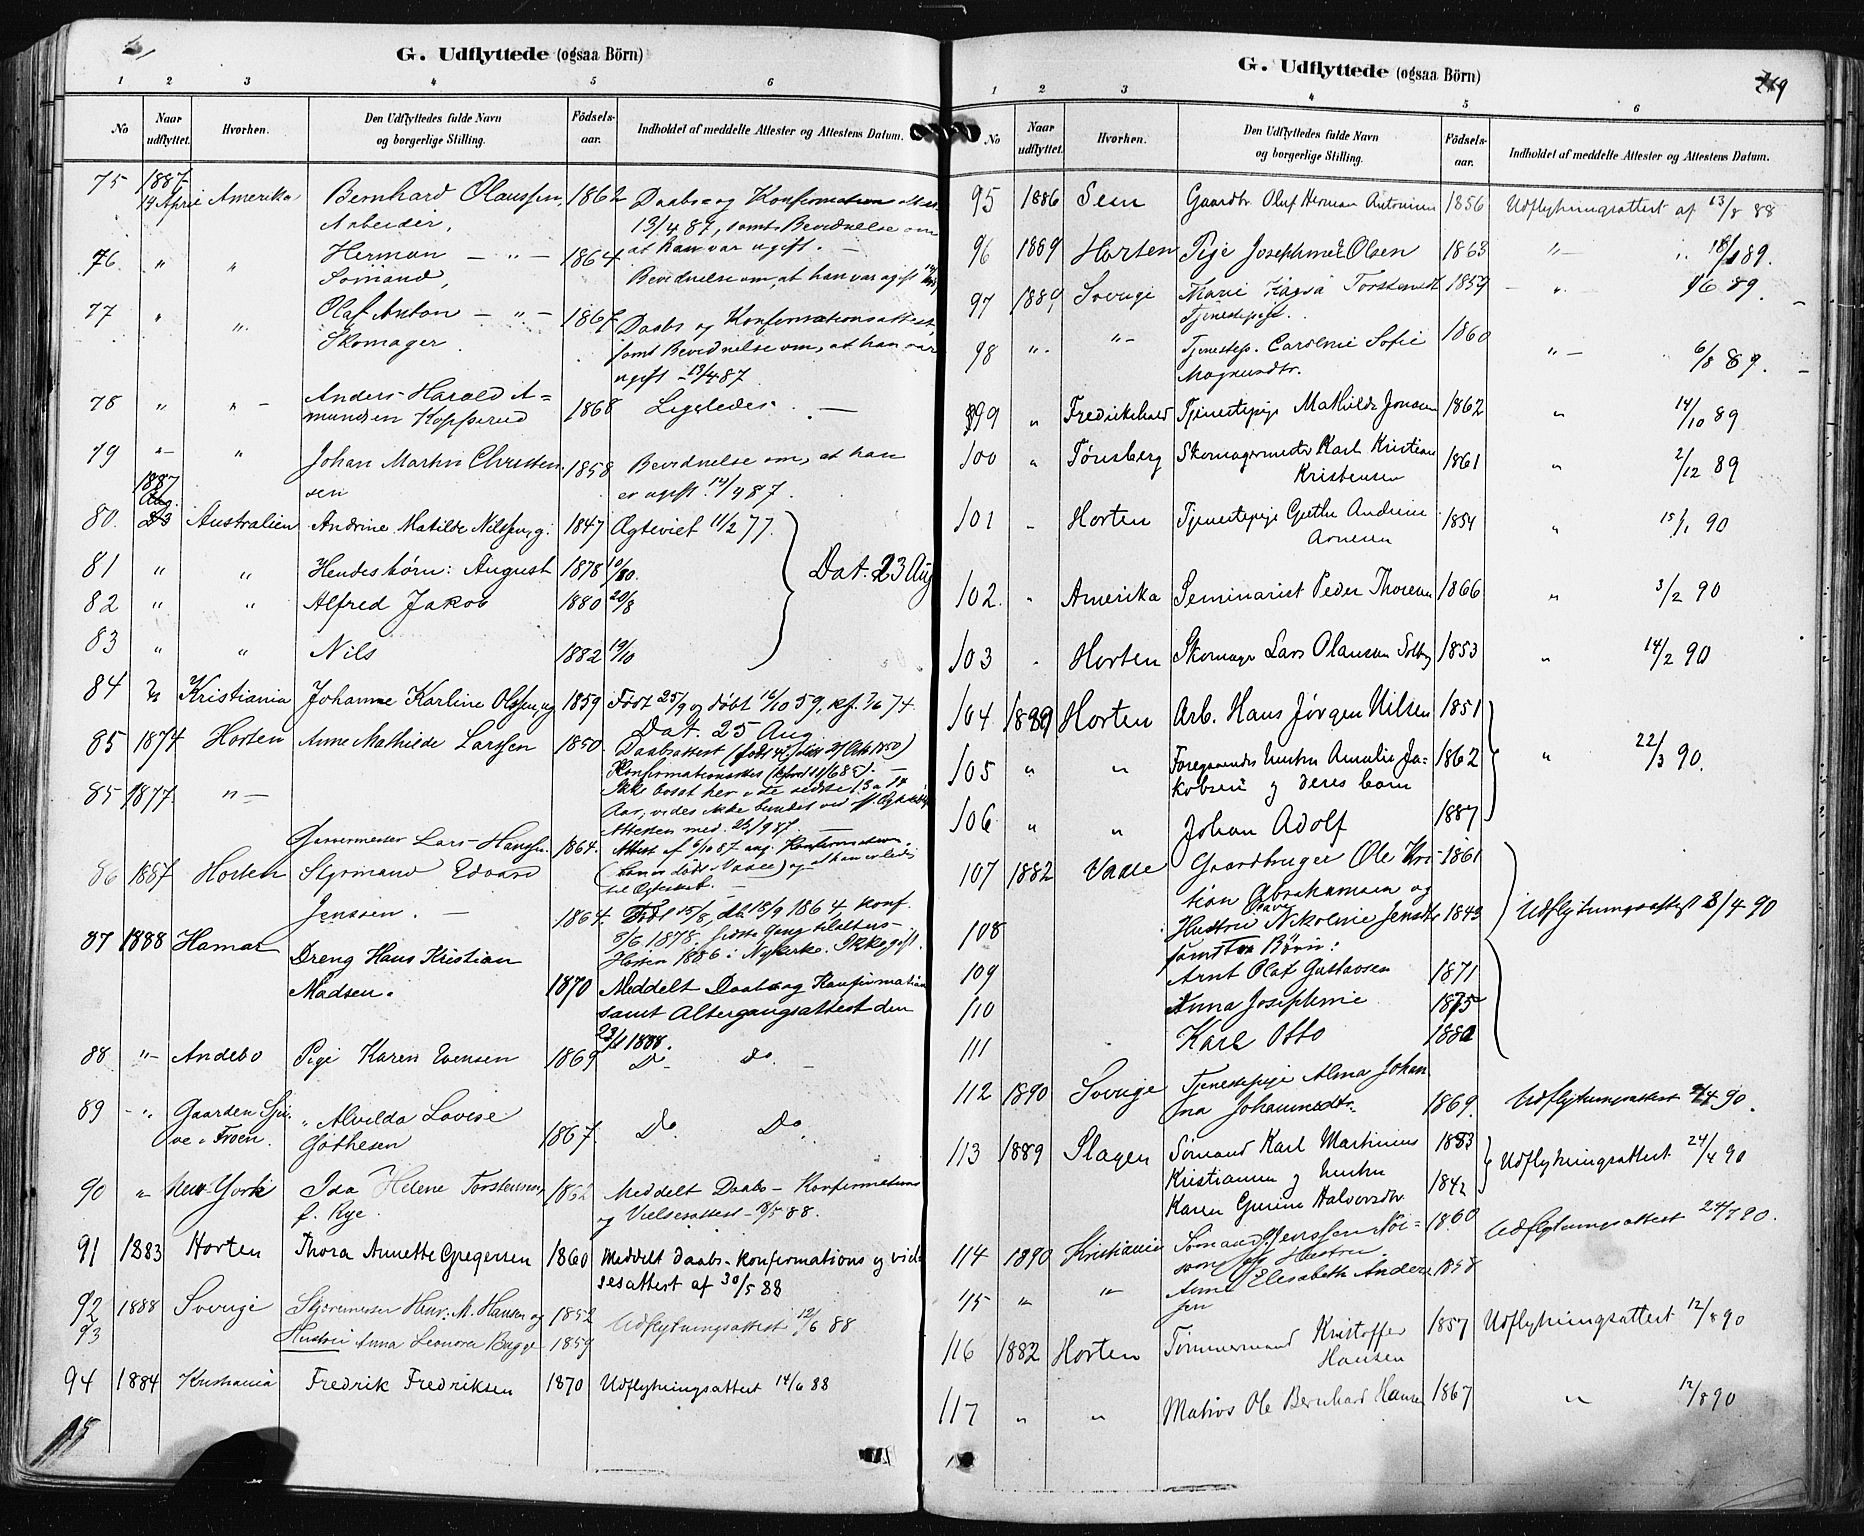 G. Udflyttede (ogsaa Börn)
1 2 3 4 5 6
No
Naar udflyttet.
Hvorhen.
Den Udflyttedes fulde Navn og borgerlige Stilling.
Födsels-aar.
Indholdet af meddelte Attester og Attestens Datum.
75 1887 14 April Amerika Bernhard Olaussen, 1862 Daabs- og Konfirmations
Arbeider, 13/4 87, samt Bevidnelse om
at han var ugift. —
76 " " Herman — " — 1864
Sømand, Bevidnelse om, at han var ugift
77 " ". Olaf Anton — " — 1867 Daabs og Konfirmationsattest,
Skomager. samt Bevidnelse om, at han var
ugift – 13/4 87.
78 " " – Anders Harald A=
mundsen Kopperud 1868 Ligeledes. —
79 " " Johan Martin Christen
sen 1858 Bevidnelse om, at han
er ugift. 14/4 87.
1887
Aug.
80. 23 Australien Andrine Matilde Nilssen, g. 1847 Ægteviet 11/2 77.
81 " " Hendes børn: August 1878 10/80.
Dat. 23 Aug
82 " " Alfred Jakob 1880 20/8
83 " " Nils 1882 19/10
84 Kristiania Johanne Karline Olssen, ug 1859 Født 25/9 og døbt 16/10 59, kf. 74
Dat. 25 Aug
85 1874 Horten Anne Mathilde Larssen 1850. Daabsattest
Konfirmationsattest
85 1877 " — Ikke bosat her i de sidste 13 a 14
Aar, vides ikke bundet ved
Attesten med. 23/9 87. —
Garvermester Lars Hanssen. 1864. Attest af 6/10 87 ang. Konfirmation
86 1887 Horten Styrmand Edvard
Jenssen. — 1864. Født 15/8, db. 18/9 1864, konf.
1878. første Gang tilalters
87 1888 Hamar Horten 1886 i Nykirke. Ikke gift.
Dreng Hans Kristian
Madsen. 1870 Meddelt Daabs og Konfirmation
samt Altergangsattest den
23/1 1888.
88 "– Andebo Pige Karen Evensen 1869 Do Do –
89 – " Gaarden
ve i Froen. " Alvilda Lovise
Gøthesen 1867. Do Do.
90 " New-York Ida Helene Torstensen 1862 Meddelt Daabs – Konfirmations
f. Rye. og Vielsesattest – 88.
91 1883 Horten Thora Annette Gregersen 1860 Meddelt Daabs- Konfirmations og vid
sesattest af 30/5 88
92 1888 Sverige Skovmester M. Hansen og 1852
Udflytningsattest 12/6 88
93 Hustru Anna Leonora Bugge 1859
94 1884 Kristiania Fredrik Fredriksen 1870 Udflytningsattest 14/6 88
95
G. Udflyttede (ogsaa Börn)
219
1 2 3 4 5 6
No
Naar udflyttet.
Hvorhen.
Den Udflyttedes fulde Navn og borgerlige Stilling.
Födsels-aar.
Indholdet af meddelte Attester og Attestens Datum.
95 1886 Sem Gaardbr Oluf Herman Antonisen 1856 Udflytningsattest af 23/8 88
96 1889 Horten Pige Josephine Olsen 1863 "– 89.
97 1889 Sverige Marie Torstensdt 1859 – " 89. –
Tjenestepige.
98 ". "– Tjenestep. Caroline Sofie 1860 "– 6/8 89. –
Magnusdtr.
99 " Fredrikshald Tjenestepige Mathilde Jonasen 1862 " 14/10 89
100 " Tønsberg Skomagermester Karl Kristian 1861 " 2/12 89
Kristensen
101 " Horten Tjenestepige Grethe Andrine 1854 " 15/1 90
Arnesen
102. " Amerika Seminarist Peder Thoresen 1866 " 3/2 90
103 " Horten Skomager Lars Olaussen Solberg 1853 " 14/2 90
104 1889 Horten Arb. Hans Jørgen Nilsen 1851
105 " " Foregaaendes hustru Amalie Ja- 1862 " 22/3 90.
kobsen og deres barn
106 " " Johan Adolf 1887
107 1882 Vaale Gaardbruger Ole Kri- 1861
stian Abrahamsen og
Udflytningsattest 8/4 90
108 Hustru Nikoline Jensdtr 1843
samt Børn:
109 Arnt Olaf Gustavsen 1871
110 Anna Josephine 1875
111 Karl Otto 1882
112 1890 Sverige Tjenestepige Alma Johan
na Johannesdtr. 1869. Udflytningsattest 90.
113 1889 Slagen Sømand Karl Martinius 1883
Kristiansen og hustru Udflytningsattest 24/4 90
Karen Gurine Halvorsdtr 1842
114 1890 Kristiania Sømand Jenssen 1860 Udflytningsattest 90.
som og Hustru.
115 " " Anne Elisabeth Ander 1858
sen
116 1882 Horten Tømmermand Kristoffer 1857 Udflytningsattest 12/8 90
Hansen
117 " " Matros Ole Bernhard Hansen 1867 " 12/8 90